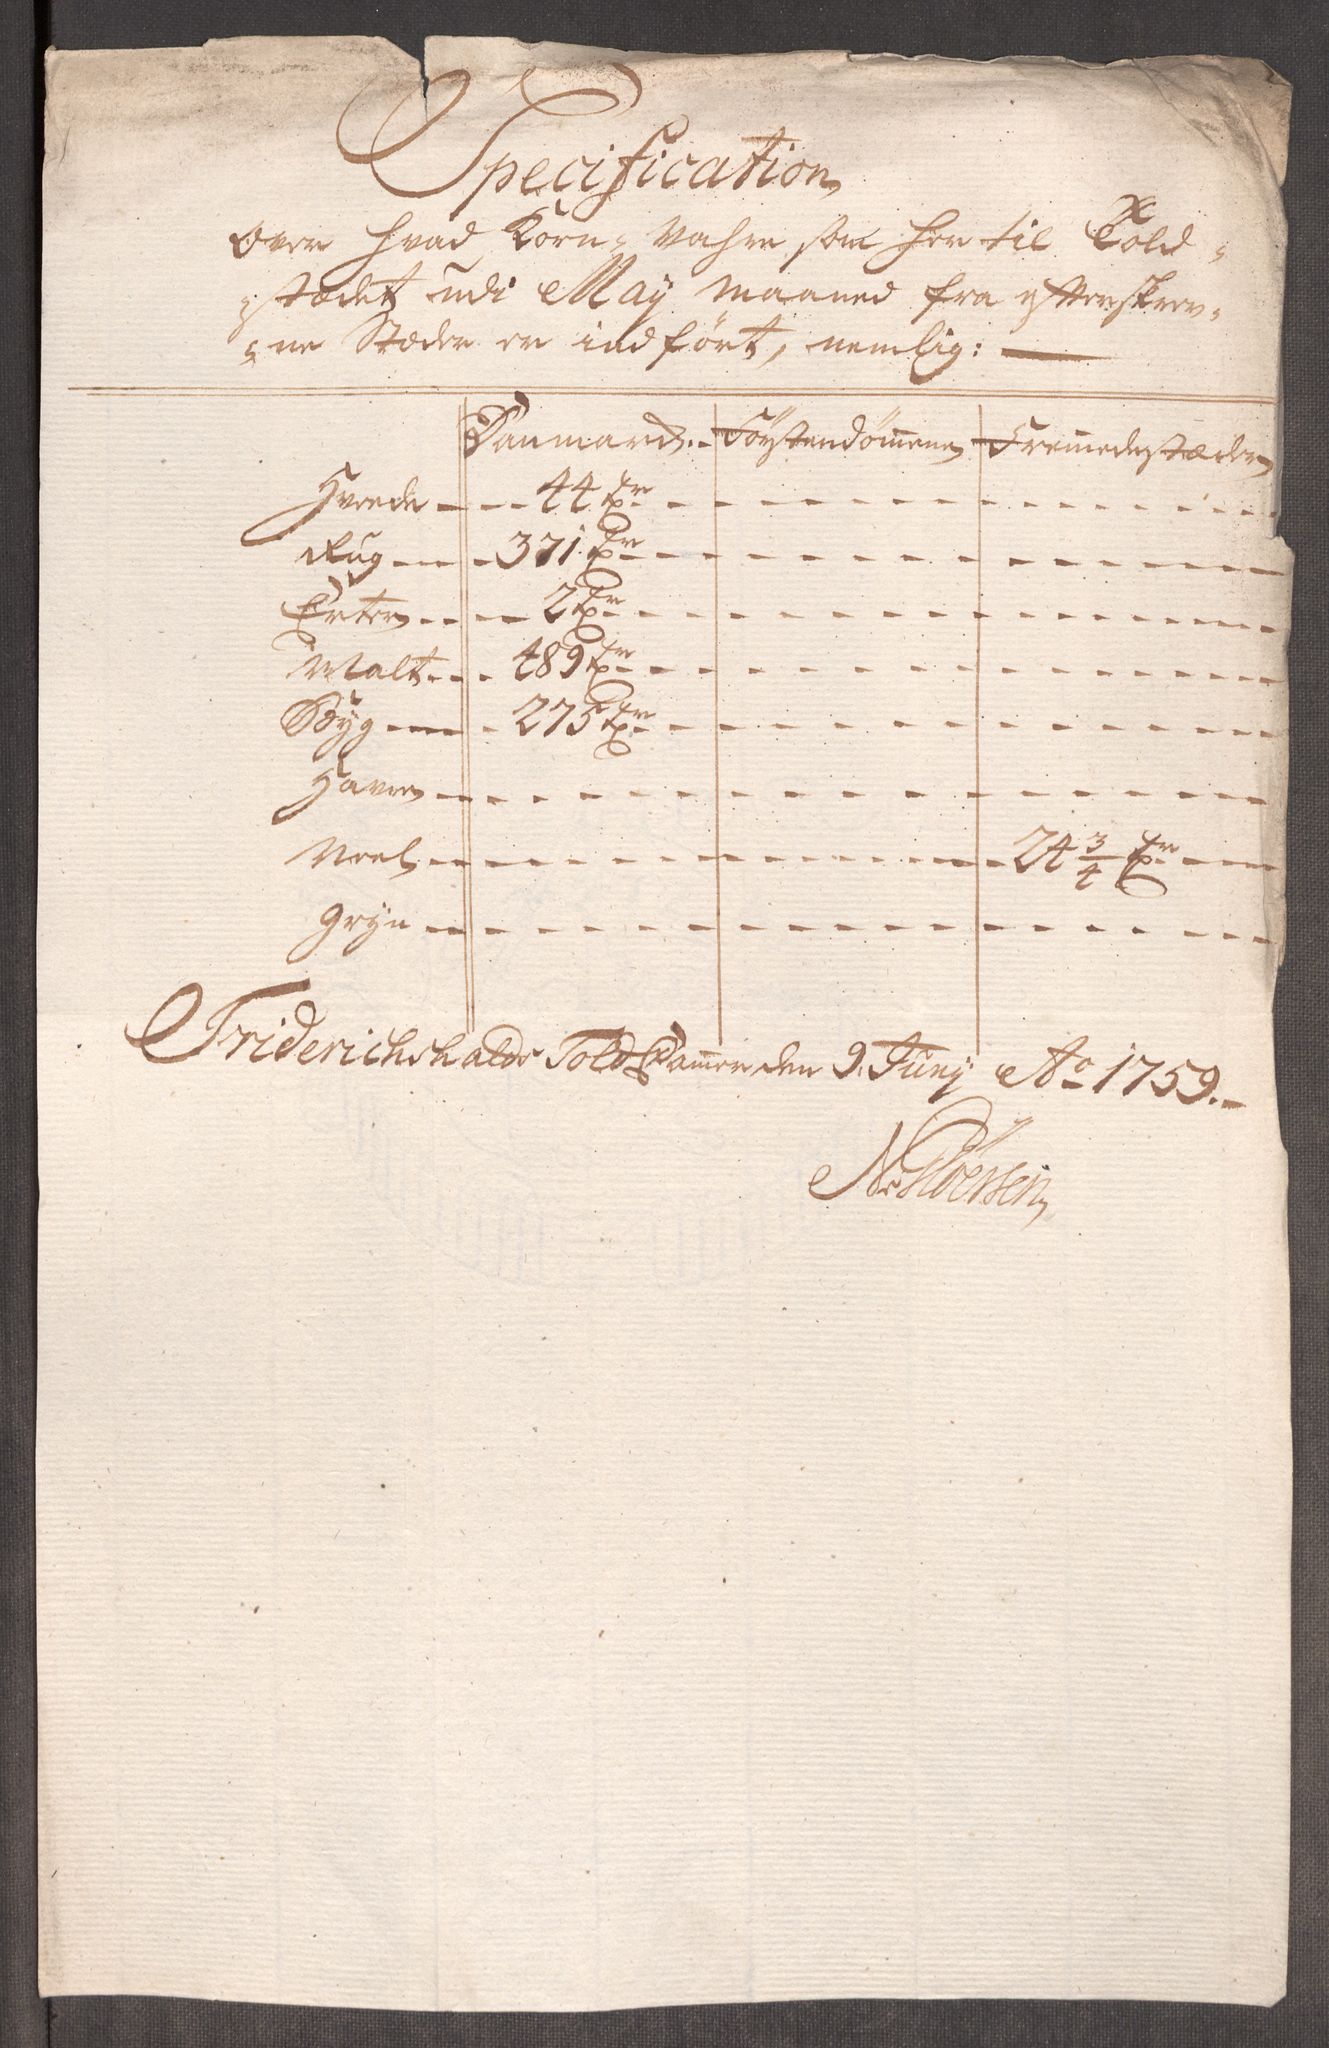 Specification
Over hvad Korn-Vahre som her til Told-
stædet udi May Maaned fra efterskrev-
ne Stæder er indført, nemlig:
Danmark Förstendömmene Fremmede stæder
Hvede 44 Tr
Rug 371 Tr
Erter 2 Tr
Malt 489 Tr
Byg 275 Tr
Havre
Meel 24 3/4 Tr
Gryn
Friderichshalds Told Kammer den 9. Juny Ao 1759.